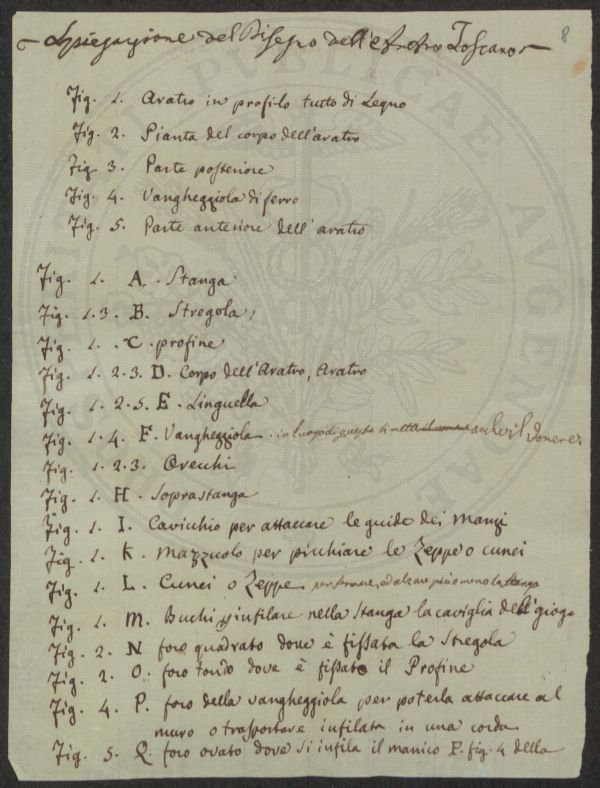 Spiegazione del Disegno dell'Aratro Toscano
8
Fig. 1. Aratro in profilo tutto di Legno
Fig. 2. Pianta del corpo dell'aratro
Fig 3. Parte posteriore
Fig. 4. Vangheggiola di ferro
Fig. 5. Parte anteriore dell'aratro
Fig. 1. A. Stanga
Fig. 1.3. B. Stregola
Fig. 1. C. profine
Fig. 1.2.3. D. Corpo dell'Aratro, Aratro
Fig. 1.2.5. E. Linguella
Fig. 1.4. F. Vangheggiola. in luogo di questa si mette anche il Vomere.
Fig. 1.2.3. Orecchi
Fig. 1. H. Soprastanga
Fig. 1. I. Cavicchio per attaccare le guide dei Manzi
Fig. 1. K. Mazzuolo per picchiare le Zeppe o cunei
Fig. 1. L. Cunei o Zeppe per fermare, ed alzare più o meno la Stanga
Fig. 1. M. Buchi p infilare nella Stanga la caviglia dell giogo
Fig. 2. N foro quadrato dove è fissata la Stregola
Fig. 2 O. foro tondo dove è fissato il Profine
Fig. 4. P. foro della vangheggiola per poterla attaccare al
muro o trasportare infilata in una corda
Fig. 5. Q. foro ovato dove si infila il manico P. fig. 4 della
PUBLICAE
AVGENDAE